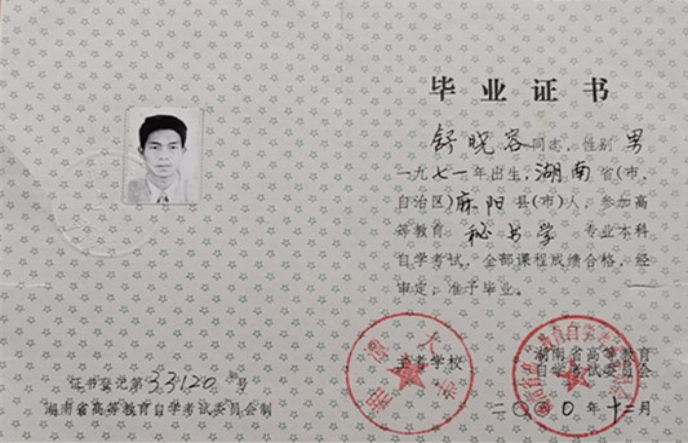 毕业证书
舒晓容同志，性别男
一九七一年出生，湖南省(市、
自治区)麻阳县(市)人，参加高
等教育秘书学专业本科
自学考试，全部课程成绩合格，经
审定，准予毕业。
主考学校
湘潭大学
湖南省高等教育
自学考试委员会
二〇〇〇年十二月
证书登记第33120号
湖南省高等教育自学考试委员会制